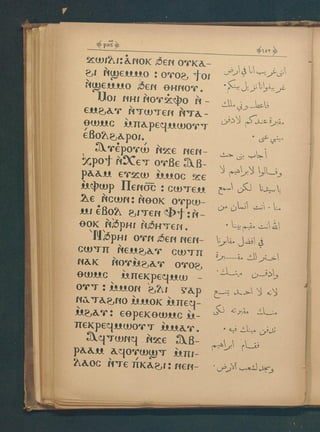 ϫⲱⲓⲗⲓ: ⲁ̀ⲛⲟⲕ ϧⲉⲛ ⲟⲩⲕⲁ-
ϩⲓ ⲛ̀ϣⲉⲙⲙⲟ : ⲟⲩⲟϩ ϯⲟⲓ
ⲛ̀ϣⲉⲙⲙⲟ ϧⲉⲛ ⲑⲏⲛⲟⲩ.
Ⲙⲟⲓ ⲛⲏⲓ ⲛⲟⲩϫ̀ⲫⲟ ⲛ̀-
ⲉⲙϩⲁⲩ ⲛ̀ⲧⲱⲧⲉⲛ ⲛ̀ⲧⲁ-
ⲑⲱⲙⲥ ⲙ̀ⲡⲁⲣⲉϥⲙⲱⲟⲩⲧ
ⲉ̀ⲃⲟⲗϩⲁⲣⲟⲓ.
Ⲁⲩⲉⲣⲟⲩⲱ̀ ⲛ̀ϫⲉ ⲛⲉⲛ-
ϫⲣⲟϯ ⲛ̀Ⲭⲉⲧ ⲟⲩⲃⲉ Ⲁⲃ-
ⲣⲁⲁⲙ ⲉⲩϫⲱ ⲙ̀ⲙⲟⲥ ϫⲉ
ⲙ̀ⲫⲱⲣ Ⲡⲉⲛⲟ̅ⲥ̅ : ⲥⲱⲧⲉⲙ
ⲇⲉ ⲛ̀ⲥⲱⲛ: ⲛ̀ⲑⲟⲕ ⲟⲩⲣⲱ-
ⲙⲓ ⲉ̀ⲃⲟⲗ ϩⲓⲧⲉⲛ Ⲫϯ: ⲛ̀-
ⲑⲟⲕ ⲛ̀ϧⲣⲏⲓ ⲛ̀ϧⲏⲧⲉⲛ.
Ⲛ̀ϧⲣⲏⲓ ⲟⲩⲛ ϧⲉⲛ ⲛⲉⲛ-
ⲥⲱⲧⲡ ⲛ̀ⲉⲙϩⲁⲩ ⲥⲱⲧⲡ
ⲛⲁⲕ ⲛ̀ⲟⲩⲙ̀ϩⲁⲩ ⲟⲩⲟϩ,
ⲑⲱⲙⲥ ⲙ̀ⲡⲉⲕⲣⲉϥⲙⲱ-
ⲟⲩⲧ : ⲙ̀ⲙⲟⲛ ϩⲗⲓ ⲅⲁⲣ
ⲛⲁⲧⲁϩⲛⲟ ⲙ̀ⲙⲟⲕ ⲙ̀ⲡⲉϥ-
ⲙ̀ϩⲁⲩ: ⲉⲑⲣⲉⲕⲑⲱⲙⲥ ⲙ̀-
ⲡⲉⲕⲣⲉϥⲙⲱⲟⲩⲧ ⲙ̀ⲙⲁⲩ.
Ⲁϥⲧⲱⲛϥ ⲛ̀ϫⲉ Ⲁⲃ-
ⲣⲁⲁⲙ ⲁϥⲟⲩⲱϣⲧ ⲙ̀ⲡⲓ-
ⲗⲁⲟⲥ ⲛ̀ⲧⲉ ⲡⲕⲁϩⲓ: ⲛⲉⲛ-
انى غريب انا فى ارض
غريبة وانا نزيل بينكم.
فاعطونى ملك
مقبرة عندكم لادفن
ميتى عنى.
أجاب بنى حث
وقالوا لابراهيم لا
ياسيدنا لكن اسمع
منا. انت انسان من
الله انت مقيم بيننا.
فى افضل مقابرنا
اختر لك مقبرة
وادفن ميتك.
لانه لا احد يمنع
منك مقبرته لكى
تدفن ميتك فيه.
فقام ابراهيم
وسجد لشعب الارض.